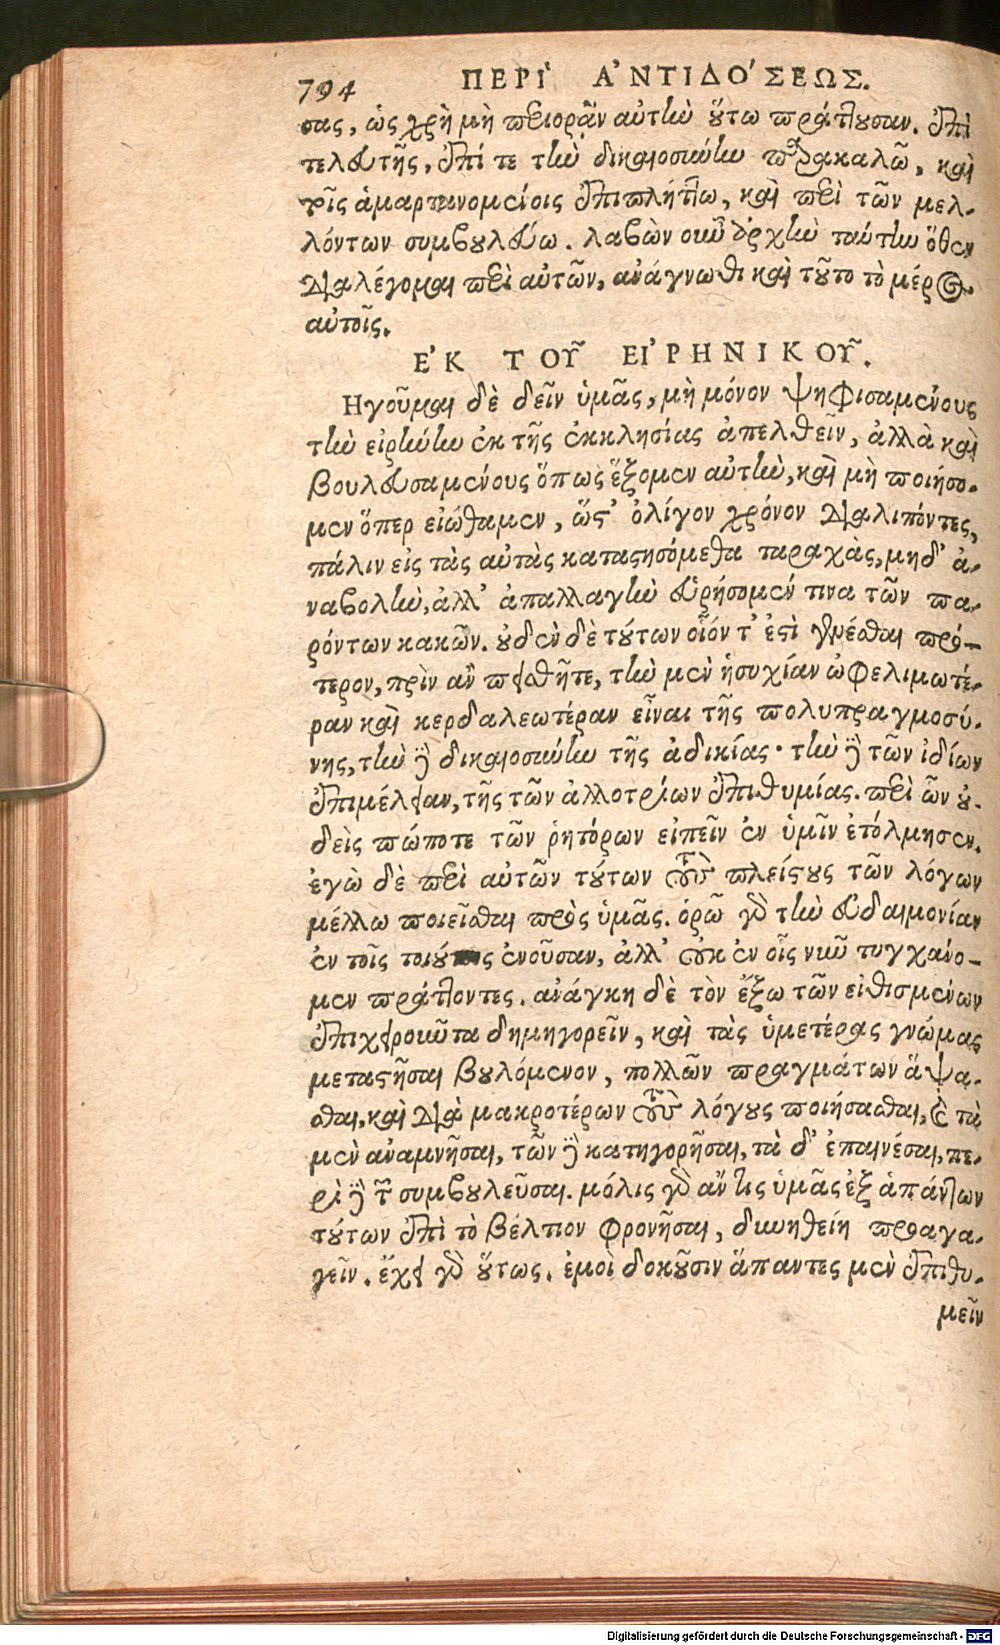 794 ΠΕΡΙ` Α'ΝΤΙΔΟ'ΣΕΩΣ.
σας, ὡς χρὴ μὴ περιορᾶν αὐτὴν οὕτω πράττουσαν. ἐπὶ
τελευτῆς, ἐπί τε τὴν δικαιοσύνην παρακαλῶ, καὶ
τοῖς ἁμαρτανομένοις ἐπιπλήττω, καὶ περὶ τῶν μελ-
λόντων συμβουλεύω. λαβὼν οὖν ἀρχὴν ταύτην ὅθεν
διαλέγομαι περὶ αὐτῶν, ἀνάγνωθι καὶ τοῦτο τὸ μέρος
αὐτοῖς.
Ε'Κ ΤΟΥ͂ ΕΙ'ΡΗΝΙΚΟΥ͂.
Ηγοῦμαι δὲ δεῖν ὑμᾶς, μὴ μόνον ψηφισαμένους
τὴν εἰρήνην ἐκ τῆς ἐκκλησίας ἀπελθεῖν, ἀλλὰ καὶ
βουλευσαμένους ὅπως ἕξομεν αὐτὴν, καὶ μὴ ποιήσο-
μεν ὅπερ εἰώθαμεν, ὥστ' ὀλίγον χρόνον διαλιπόντες,
πάλιν εἰς τὰς αὐτὰς καταστησόμεθα ταραχὰς, μηδ' ἀ-
ναβολὴν, ἀλλ' ἀπαλλαγὴν εὑρήσομέν τινα τῶν πα-
ρόντων κακῶν. οὐδὲν δὲ τούτων οἷόν τ' ἐστὶ γενέσθαι πρό-
τερον, πρὶν ἂν πεισθῆτε, τὴν μὲν ἡσυχίαν ὠφελιμωτέ-
ραν καὶ κερδαλεωτέραν εἶναι τῆς πολυπραγμοσύ-
νης, τὴν δὲ δικαιοσύνην τῆς ἀδικίας· τὴν δὲ τῶν ἰδίων
ἐπιμέλειαν, τῆς τῶν ἀλλοτρίων ἐπιθυμίας. περὶ ὧν οὐ-
δεὶς πώποτε τῶν ῥητόρων εἰπεῖν ἐν ὑμῖν ἐτόλμησεν.
ἐγὼ δὲ περὶ αὐτῶν τούτων τοὺς πλείστους τῶν λόγων
μέλλω ποιεῖσθαι πρὸς ὑμᾶς. ὁρῶ γὰρ τὴν εὐδαιμονίαν
ἐν τοῖς τοιούτοις ἐνοῦσαν, ἀλλ' οὐκ ἐν οἷς νῦν τυγχάνο-
μεν πράττοντες. ἀνάγκη δὲ τὸν ἔξω τῶν εἰθισμένων
ἐπιχειροῦντα δημηγορεῖν, καὶ τὰς ὑμετέρας γνώμας
μεταστῆσαι βουλόμενον, πολλῶν πραγμάτων ἅψα-
σθαι, καὶ διὰ μακροτέρων τοὺς λόγους ποιήσασθαι, καὶ τὰ
μὲν ἀναμνῆσαι, τῶν δὲ κατηγορῆσαι, τὰ δ' ἐπαινέσαι, πε-
ρὶ δὲ τῶν συμβουλεῦσαι. μόλις γὰρ ἄν τις ὑμᾶς ἐξ ἁπάντων
τούτων ἐπὶ τὸ βέλτιον φρονῆσαι, δυνηθείη προαγα-
γεῖν. ἔχει γὰρ οὕτως. ἐμοὶ δοκοῦσιν ἅπαντες μὲν ἐπιθυ-
μεῖν
Digitalisierung gefördert durch die Deutsche Forschungsgemeinschaft - DFG